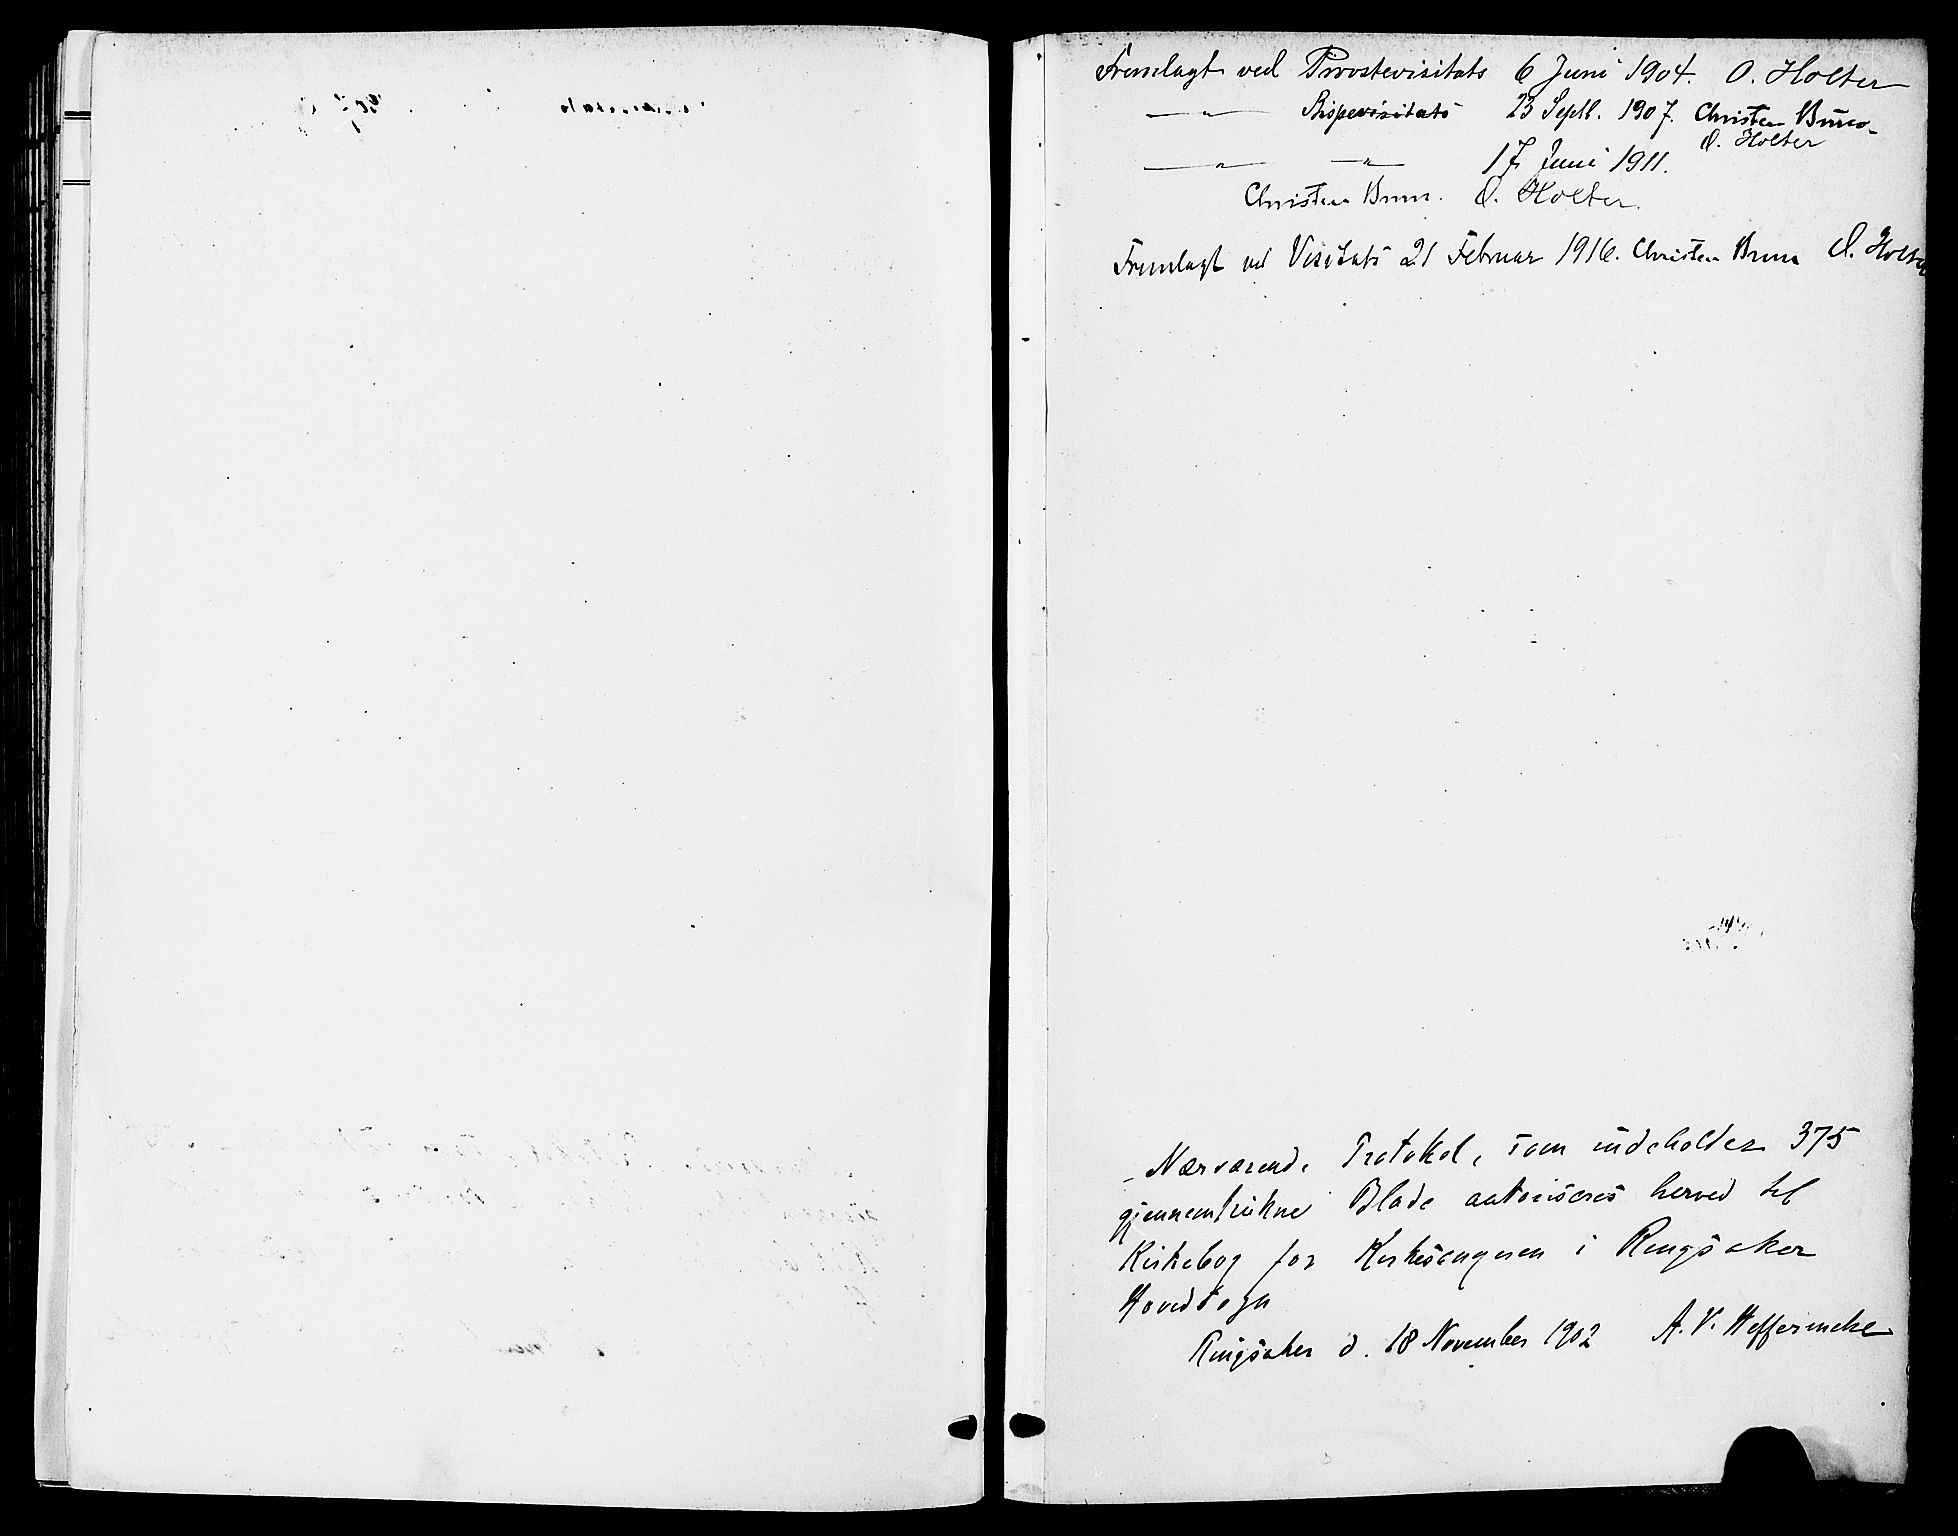 Fremlagt ved Provstevisitats 6 Juni 1904. O. Holter
— " — Bispevisitats 23 Septb. 1907. Christen Brun
O. Holter
— " — — " — 17 Juni 1911.
Christen Brun. O. Holter.
Fremlagt ved Visitats 21 Februar 1916. Christen Brun O. Holter
Nærværende Protokol, som indeholder 375
gjennemtrukne Blade autoriseres herved til
Kirkebog for Kirkesangeren i Ringsaker
Hovedsogn
Ringsaker d. 18 November 1902 A. V. Heffermehl